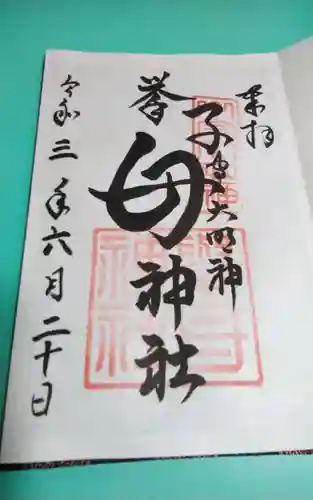 奉拝
子守大明神
挙母神社
令和三年六月二十日